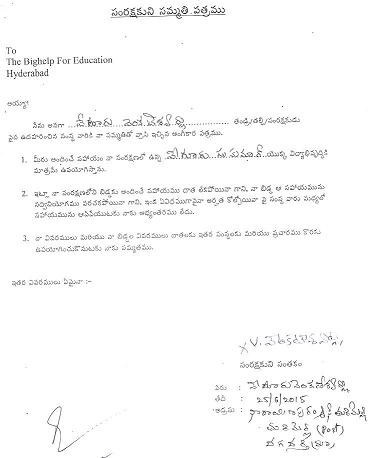 సంరక్షకుని సమ్మతి పత్రము
To
The Bighelp For Education
Hyderabad
అయ్యా!
నేను అనగా .......... తండ్రి/తల్లి/సంరక్షకుడు
పైన ఉదహరించిన సంస్థ వారికి నా సమ్మతితో వ్రాసి ఇచ్చిన అంగీకార పత్రము.
1. మీరు అందించే సహాయం నా సంరక్షణలో ఉన్న యొక్క విద్యాభివృద్ధికి
మాత్రమే ఉపయోగిస్తాను.
2. ఇట్లూ నా సంరక్షణలోని బిడ్డకు అందించే సహాయము దాత లేకపోయినా గాని, నా బిడ్డ ఆ సహాయమును
సద్వినియోగము పరచకపోయినా గాని, ఇంకే ఏవిధముగానైనా అర్హత కోల్పోయినా పై సంస్థ వారు మధ్యలో
సహాయమును ఆపివేయుటకు నాకు అభ్యంతరము లేదు.
3. నా వివరములు మరియు నా బిడ్డల వివరములు దాతలకు ఇతర సంస్థలకు మరియు ప్రచారము కొరకు
ఉపయోగించుకొనుటకు నాకు సమ్మతము.
ఇతర వివరములు ఏమైనా :-
సంరక్షకుని సంతకం
పేరు :
తేది : 25/6/2015
అడ్రసు :